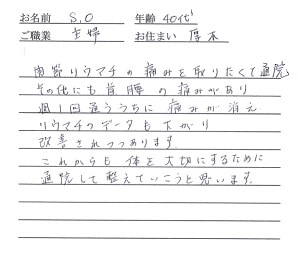 お名前 S.O 年齢 40代
ご職業 主婦 お住まい 厚木
関節リウマチの痛みを取りたくて通院
その他にも首腰の痛みがあり
週1回通ううちに痛みが消え
リウマチのデータも下がり
改善されつつあります
これからも体を大切にするために
通院して整えていこうと思います。